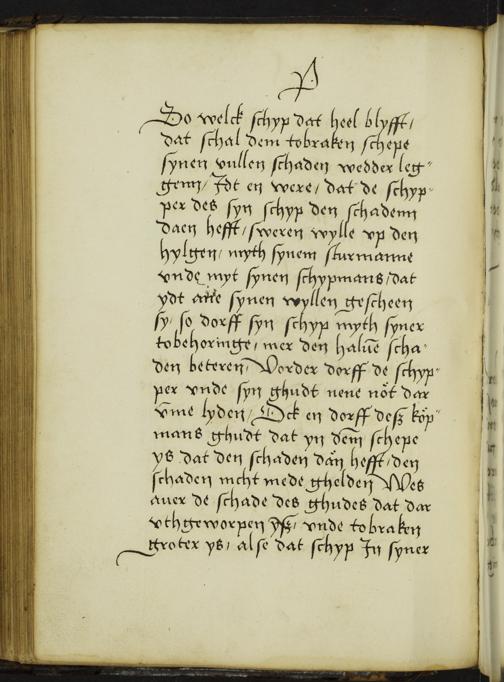 P
So welck schyp dat heel blyfft,
dat schal dem tobraken schepe
synen vullen schaden wedder leg-
genn, Idt en were, dat de schyp-
per des syn schyp den schadenn
daen hefft, sweren wylle vp den
hylgen, myth synem sturmanne
vnde myt synen schypmans, dat
ydt ane synen wyllen gescheen
sy, so dorff syn schyp myth syner
tobehoringe, mer den halue scha-
den beteren, Vorder dorff de schyp-
per vnde syn ghudt nene nöt dar
vm̄e lyden, Ock en dorff desz köp-
mans ghudt dat yn dem schepe
ys dat den schaden dän hefft, den
schaden nicht mede ghelden Wes
auer de schade des ghudes dat dar
vthgeworpen ysz, vnde tobraken
groter ys, alse dat schyp In syner